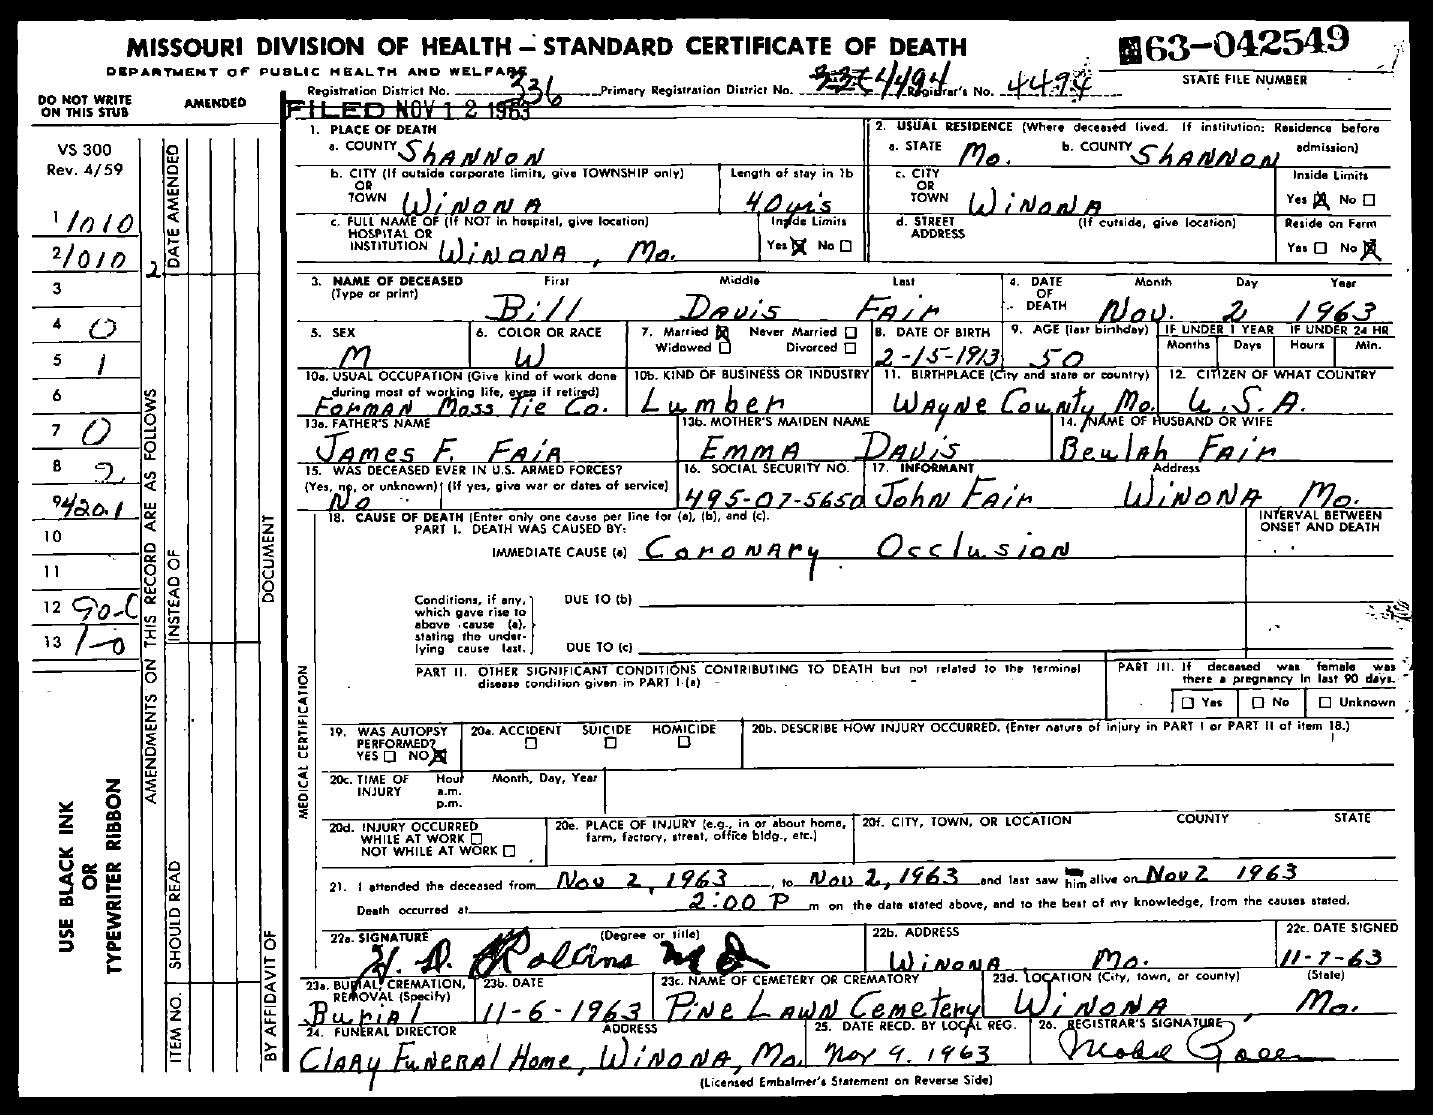 MISSOURI DIVISION OF HEALTH — STANDARD CERTIFICATE OF DEATH
63-042549
DEPARTMENT OF PUBLIC HEALTH AND WELFARE
STATE FILE NUMBER
Registration District No. 336 Primary Registration District No. 4494 Registrar's No. 4494
DO NOT WRITE ON THIS STUB
AMENDED
FILED NOV 12 1963
VS 300
Rev. 4/59
1 1010
2 1010
3
4 0
5 1
6
7 0
8 2
9 420.1
10
11
12 90-C
13 1-0
USE BLACK INK OR TYPEWRITER RIBBON
AMENDMENTS ON THIS RECORD ARE AS FOLLOWS
DATE AMENDED
2
INSTEAD OF
DOCUMENT
SHOULD READ
ITEM NO.
BY AFFIDAVIT OF
MEDICAL CERTIFICATION
1. PLACE OF DEATH
a. COUNTY Shannon
b. CITY (If outside corporate limits, give TOWNSHIP only) OR TOWN Winona
Length of stay in 1b 40 yrs
c. FULL NAME OF (If NOT in hospital, give location) HOSPITAL OR INSTITUTION Winona, Mo.
Inside Limits Yes ☒ No ☐
2. USUAL RESIDENCE (Where deceased lived. If institution: Residence before admission)
a. STATE Mo. b. COUNTY Shannon
c. CITY OR TOWN Winona
Inside Limits Yes ☒ No ☐
d. STREET ADDRESS (If outside, give location)
Reside on Farm Yes ☐ No ☒
3. NAME OF DECEASED (Type or print) First Middle Last
Bill Davis Fair
4. DATE OF DEATH Month Day Year
Nov. 2 1963
5. SEX M
6. COLOR OR RACE W
7. Married ☒ Never Married ☐ Widowed ☐ Divorced ☐
8. DATE OF BIRTH 2-15-1913
9. AGE (last birthday) 50
IF UNDER 1 YEAR Months Days
IF UNDER 24 HR Hours Min.
10a. USUAL OCCUPATION (Give kind of work done during most of working life, even if retired) Forman Moss Tie Co.
10b. KIND OF BUSINESS OR INDUSTRY Lumber
11. BIRTHPLACE (City and state or country) Wayne County Mo.
12. CITIZEN OF WHAT COUNTRY U.S.A.
13a. FATHER'S NAME James F. Fair
13b. MOTHER'S MAIDEN NAME Emma Davis
14. NAME OF HUSBAND OR WIFE Beulah Fair
15. WAS DECEASED EVER IN U.S. ARMED FORCES? (Yes, no, or unknown) (If yes, give war or dates of service) No
16. SOCIAL SECURITY NO. 495-07-5650
17. INFORMANT Address
John Fair Winona Mo.
18. CAUSE OF DEATH (Enter only one cause per line for (a), (b), and (c).
PART I. DEATH WAS CAUSED BY:
INTERVAL BETWEEN ONSET AND DEATH
IMMEDIATE CAUSE (a) Coronary Occlusion
Conditions, if any, which gave rise to above cause (a), stating the underlying cause last.
DUE TO (b)
DUE TO (c)
PART II. OTHER SIGNIFICANT CONDITIONS CONTRIBUTING TO DEATH but not related to the terminal disease condition given in PART I (a)
PART III. If deceased was female was there a pregnancy in last 90 days.
☐ Yes ☐ No ☐ Unknown
19. WAS AUTOPSY PERFORMED? YES ☐ NO ☒
20a. ACCIDENT ☐ SUICIDE ☐ HOMICIDE ☐
20b. DESCRIBE HOW INJURY OCCURRED. (Enter nature of injury in PART I or PART II of item 18.)
20c. TIME OF INJURY Hour a.m. p.m. Month, Day, Year
20d. INJURY OCCURRED WHILE AT WORK ☐ NOT WHILE AT WORK ☐
20e. PLACE OF INJURY (e.g., in or about home, farm, factory, street, office bldg., etc.)
20f. CITY, TOWN, OR LOCATION COUNTY STATE
21. I attended the deceased from Nov 2, 1963, to Nov 2, 1963 and last saw him alive on Nov 2 1963
Death occurred at 2:00 P m on the date stated above, and to the best of my knowledge, from the causes stated.
22a. SIGNATURE (Degree or title) Rollins MD
22b. ADDRESS Winona Mo.
22c. DATE SIGNED 11-7-63
23a. BURIAL, CREMATION, REMOVAL (Specify) Burial
23b. DATE 11-6-1963
23c. NAME OF CEMETERY OR CREMATORY Pine Lawn Cemetery
23d. LOCATION (City, town, or county) (State) Winona, Mo.
24. FUNERAL DIRECTOR ADDRESS
Clary Funeral Home, Winona, Mo.
25. DATE RECD. BY LOCAL REG. Nov 9, 1963
26. REGISTRAR'S SIGNATURE
(Licensed Embalmer's Statement on Reverse Side)